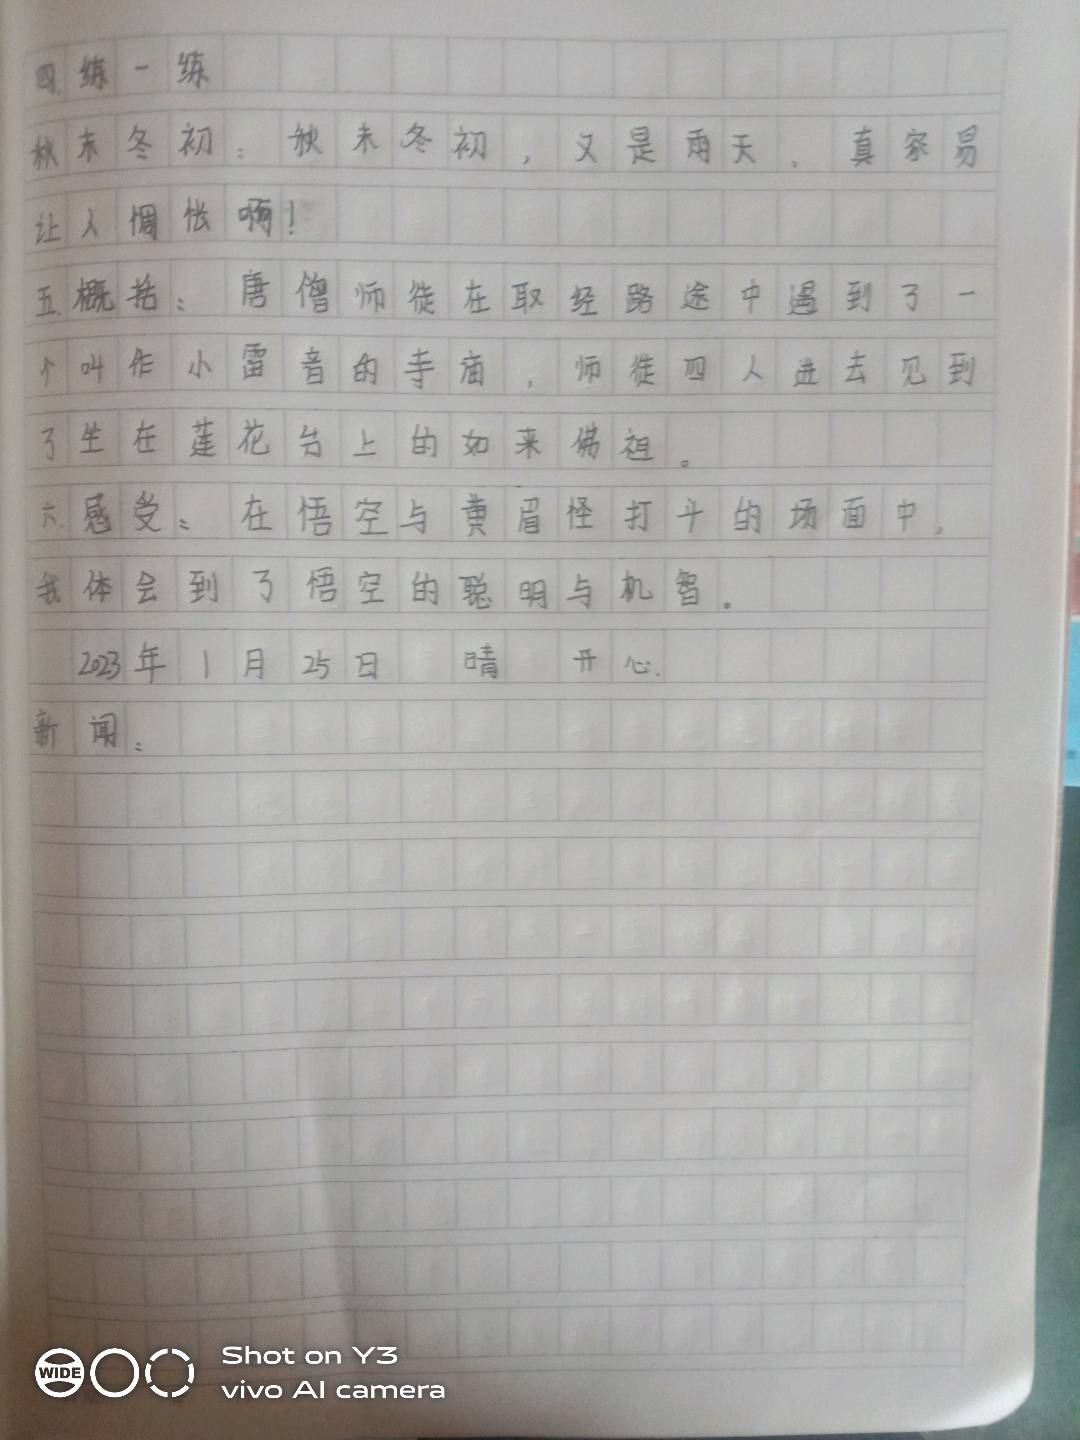 四.练一练
秋末冬初：秋末冬初，又是雨天，真容易
让人惆怅啊！
五.概括：唐僧师徒在取经路途中遇到了一
个叫作小雷音的寺庙，师徒四人进去见到
了坐在莲花台上的如来佛祖。
六.感受：在悟空与黄眉怪打斗的场面中，
我体会到了悟空的聪明与机智。
2023年1月25日 晴 开心.
新闻：
WIDE
Shot on Y3
vivo AI camera